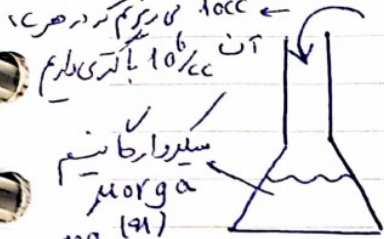 ← 10cc می ریزیم که در هر ۱c
آن 10⁶/cc باکتری داریم
میکروارگانیسم
μorga